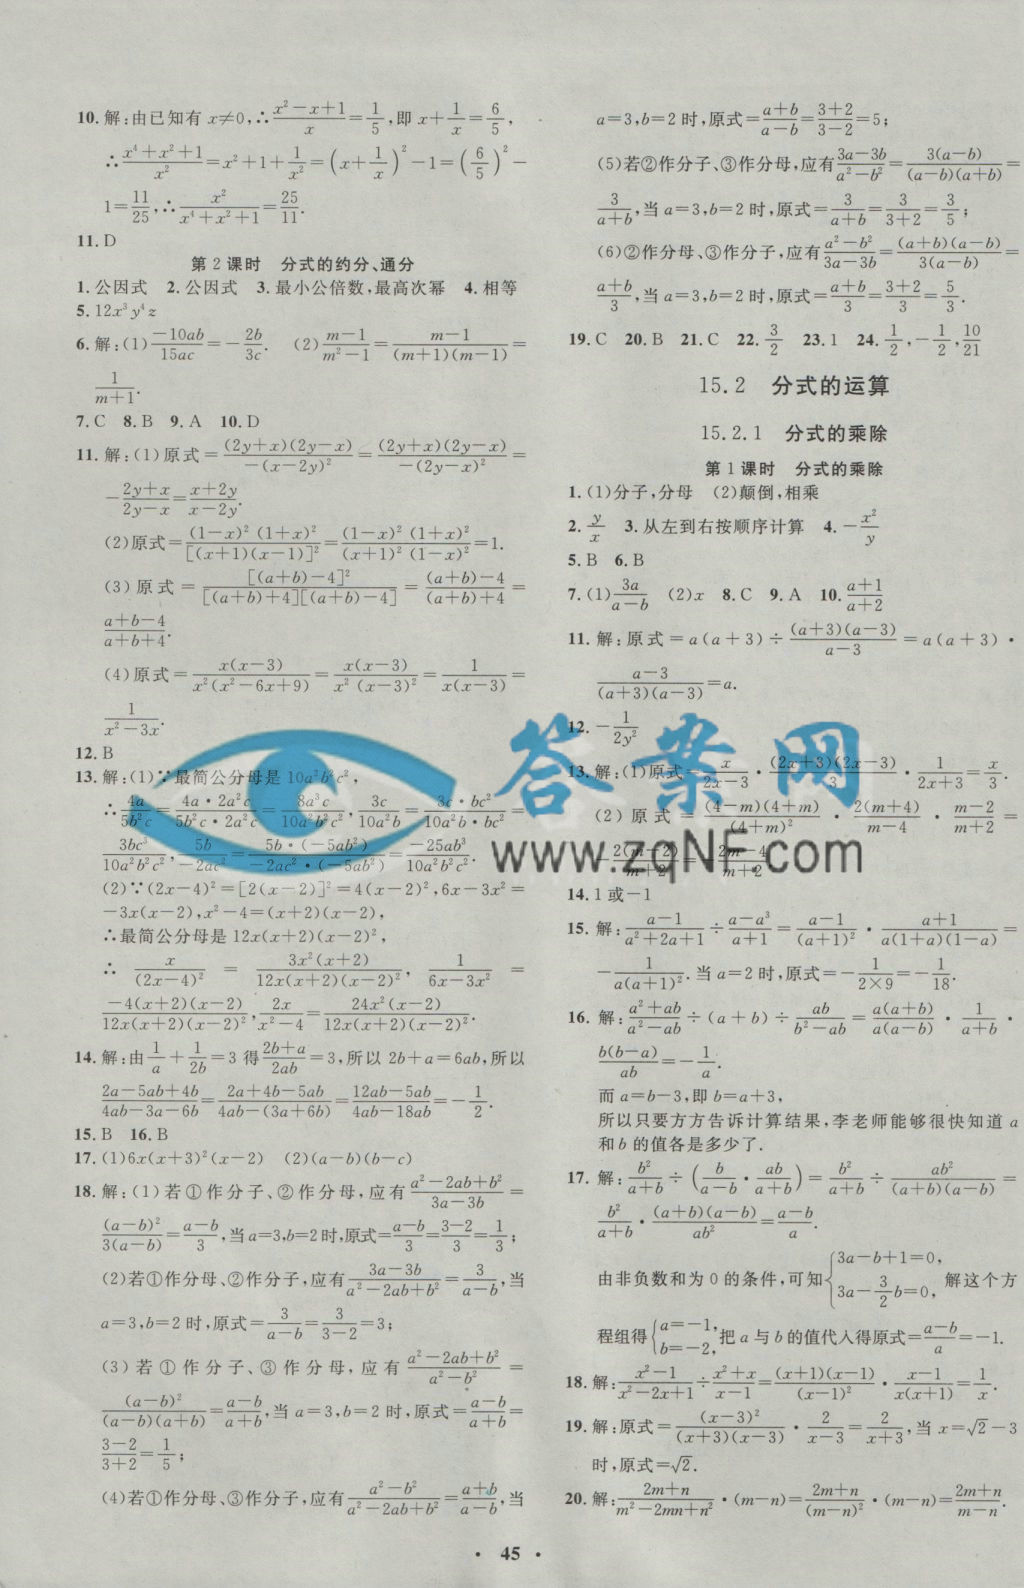 10. 解:由已知有 x≠0,∴(x²-x+1)/x=1/5,即 x+1/x=6/5,
∴(x⁴+x²+1)/x²=x²+1+1/x²=(x+1/x)²-1=(6/5)²-
1=11/25,∴x²/(x⁴+x²+1)=25/11.
11. D
第 2 课时 分式的约分、通分
1. 公因式 2. 公因式 3. 最小公倍数,最高次幂 4. 相等
5. 12x³y⁴z
6. 解:(1)(-10ab)/(15ac)=-2b/3c. (2)(m-1)/(m²-1)=(m-1)/((m+1)(m-1))=
1/(m+1).
7. C 8. B 9. A 10. D
11. 解:(1)原式=((2y+x)(2y-x))/(-(x-2y)²)=((2y+x)(2y-x))/(-(2y-x)²)=
-(2y+x)/(2y-x)=(x+2y)/(x-2y).
(2)原式=((1-x)²(1+x)²)/([(x+1)(x-1)]²)=((1-x)²(1+x)²)/((x+1)²(1-x)²)=1.
(3)原式=([(a+b)-4]²)/([(a+b)+4][(a+b)-4])=((a+b)-4)/((a+b)+4)=
(a+b-4)/(a+b+4).
(4)原式=(x(x-3))/(x²(x²-6x+9))=(x(x-3))/(x²(x-3)²)=1/(x(x-3))=
1/(x²-3x).
12. B
13. 解:(1)∵最简公分母是 10a²b²c²,
∴4a/(5b²c)=(4a·2a²c)/(5b²c·2a²c)=(8a³c)/(10a²b²c²),3c/(10a²b)=(3c·bc²)/(10a²b·bc²)=
(3bc³)/(10a²b²c²),5b/(-2ac²)=(5b·(-5ab²))/(-2ac²·(-5ab²))=(-25ab³)/(10a²b²c²).
(2)∵(2x-4)²=[2(x-2)]²=4(x-2)²,6x-3x²=
-3x(x-2),x²-4=(x+2)(x-2),
∴最简公分母是 12x(x+2)(x-2)²,
∴x/((2x-4)²)=(3x²(x+2))/(12x(x+2)(x-2)²),1/(6x-3x²)=
(-4(x+2)(x-2))/(12x(x+2)(x-2)²),2x/(x²-4)=(24x²(x-2))/(12x(x+2)(x-2)²).
14. 解:由1/a+1/2b=3 得(2b+a)/2ab=3,所以 2b+a=6ab,所以
(2a-5ab+4b)/(4ab-3a-6b)=(2a+4b-5ab)/(4ab-(3a+6b))=(12ab-5ab)/(4ab-18ab)=-1/2.
15. B 16. B
17. (1)6x(x+3)²(x-2) (2)(a-b)(b-c)
18. 解:(1)若①作分子、②作分母,应有(a²-2ab+b²)/(3a-3b)=
((a-b)²)/(3(a-b))=(a-b)/3,当 a=3,b=2 时,原式=(a-b)/3=(3-2)/3=1/3;
(2)若①作分母、②作分子,应有(3a-3b)/(a²-2ab+b²)=3/(a-b),当
a=3,b=2 时,原式=3/(a-b)=3/(3-2)=3;
(3)若①作分子、③作分母,应有(a²-2ab+b²)/(a²-b²)=
((a-b)²)/((a-b)(a+b))=(a-b)/(a+b),当 a=3,b=2 时,原式=(a-b)/(a+b)=
(3-2)/(3+2)=1/5;
(4)若①作分母、③作分子,应有(a²-b²)/(a²-2ab+b²)=(a+b)/(a-b),当
a=3,b=2 时,原式=(a+b)/(a-b)=(3+2)/(3-2)=5;
(5)若②作分子、③作分母,应有(3a-3b)/(a²-b²)=(3(a-b))/((a-b)(a+b))=
3/(a+b),当 a=3,b=2 时,原式=3/(a+b)=3/(3+2)=3/5;
(6)②作分母、③作分子,应有(a²-b²)/(3a-3b)=((a+b)(a-b))/(3(a-b))=
(a+b)/3,当 a=3,b=2 时,原式=(a+b)/3=(3+2)/3=5/3.
19. C 20. B 21. C 22. 3/2 23. 1 24. 1/2,-1/2,10/21
15.2 分式的运算
15.2.1 分式的乘除
第 1 课时 分式的乘除
1. (1)分子,分母 (2)颠倒,相乘
2. y/x 3. 从左到右按顺序计算 4. -x²/y
5. B 6. B
7. (1)3a/(a-b) (2)x 8. C 9. A 10. (a+1)/(a+2)
11. 解:原式=a(a+3)÷((a+3)(a-3))/(a-3)=a(a+3)·
(a-3)/((a+3)(a-3))=a.
12. -1/2y²
13. 解:(1)原式=x/(2x-3)·((2x+3)(2x-3))/3·1/(2x+3)=x/3.
(2)原式=((4-m)(4+m))/((4+m)²)·(2(m+4))/(m-4)·(m-2)/(m+2)=
-(2(m-2))/(m+2)=-(2m-4)/(m+2).
14. 1 或-1
15. 解:(a-1)/(a²+2a+1)÷(a-a³)/(a+1)=(a-1)/((a+1)²)·(a+1)/(a(1+a)(1-a))=
-1/(a(a+1)²).当 a=2 时,原式=-1/(2×9)=-1/18.
16. 解:(a²+ab)/(a²-ab)÷(a+b)÷ab/(b²-ab)=(a(a+b))/(a(a-b))·1/(a+b)·
(b(b-a))/ab=-1/a.
而 a=b-3,即 b=a+3,
所以只要方方告诉计算结果,李老师能够很快知道 a
和 b 的值各是多少了.
17. 解:b²/(a+b)÷(b/(a-b)·ab/(a+b))=b²/(a+b)÷ab²/((a+b)(a-b))=
b²/(a+b)·((a+b)(a-b))/ab²=(a-b)/a.
由非负数和为 0 的条件,可知{3a-b+1=0, 3a-3/2b=0, 解这个方
程组得{a=-1, b=-2,把 a 与 b 的值代入得原式=(a-b)/a=-1.
18. 解:(x²-1)/(x²-2x+1)÷(x²+x)/(x-1)=((x+1)(x-1))/((x-1)²)·(x-1)/(x(x+1))=1/x.
19. 解:原式=((x-3)²)/((x+3)(x-3))·2/(x-3)=2/(x+3),当 x=√2-3
时,原式=√2.
20. 解:(2m+n)/(m²-2mn+n²)·(m-n)=(2m+n)/((m-n)²)·(m-n)=(2m+n)/(m-n).
答案网
www.zqNF.com
· 45 ·